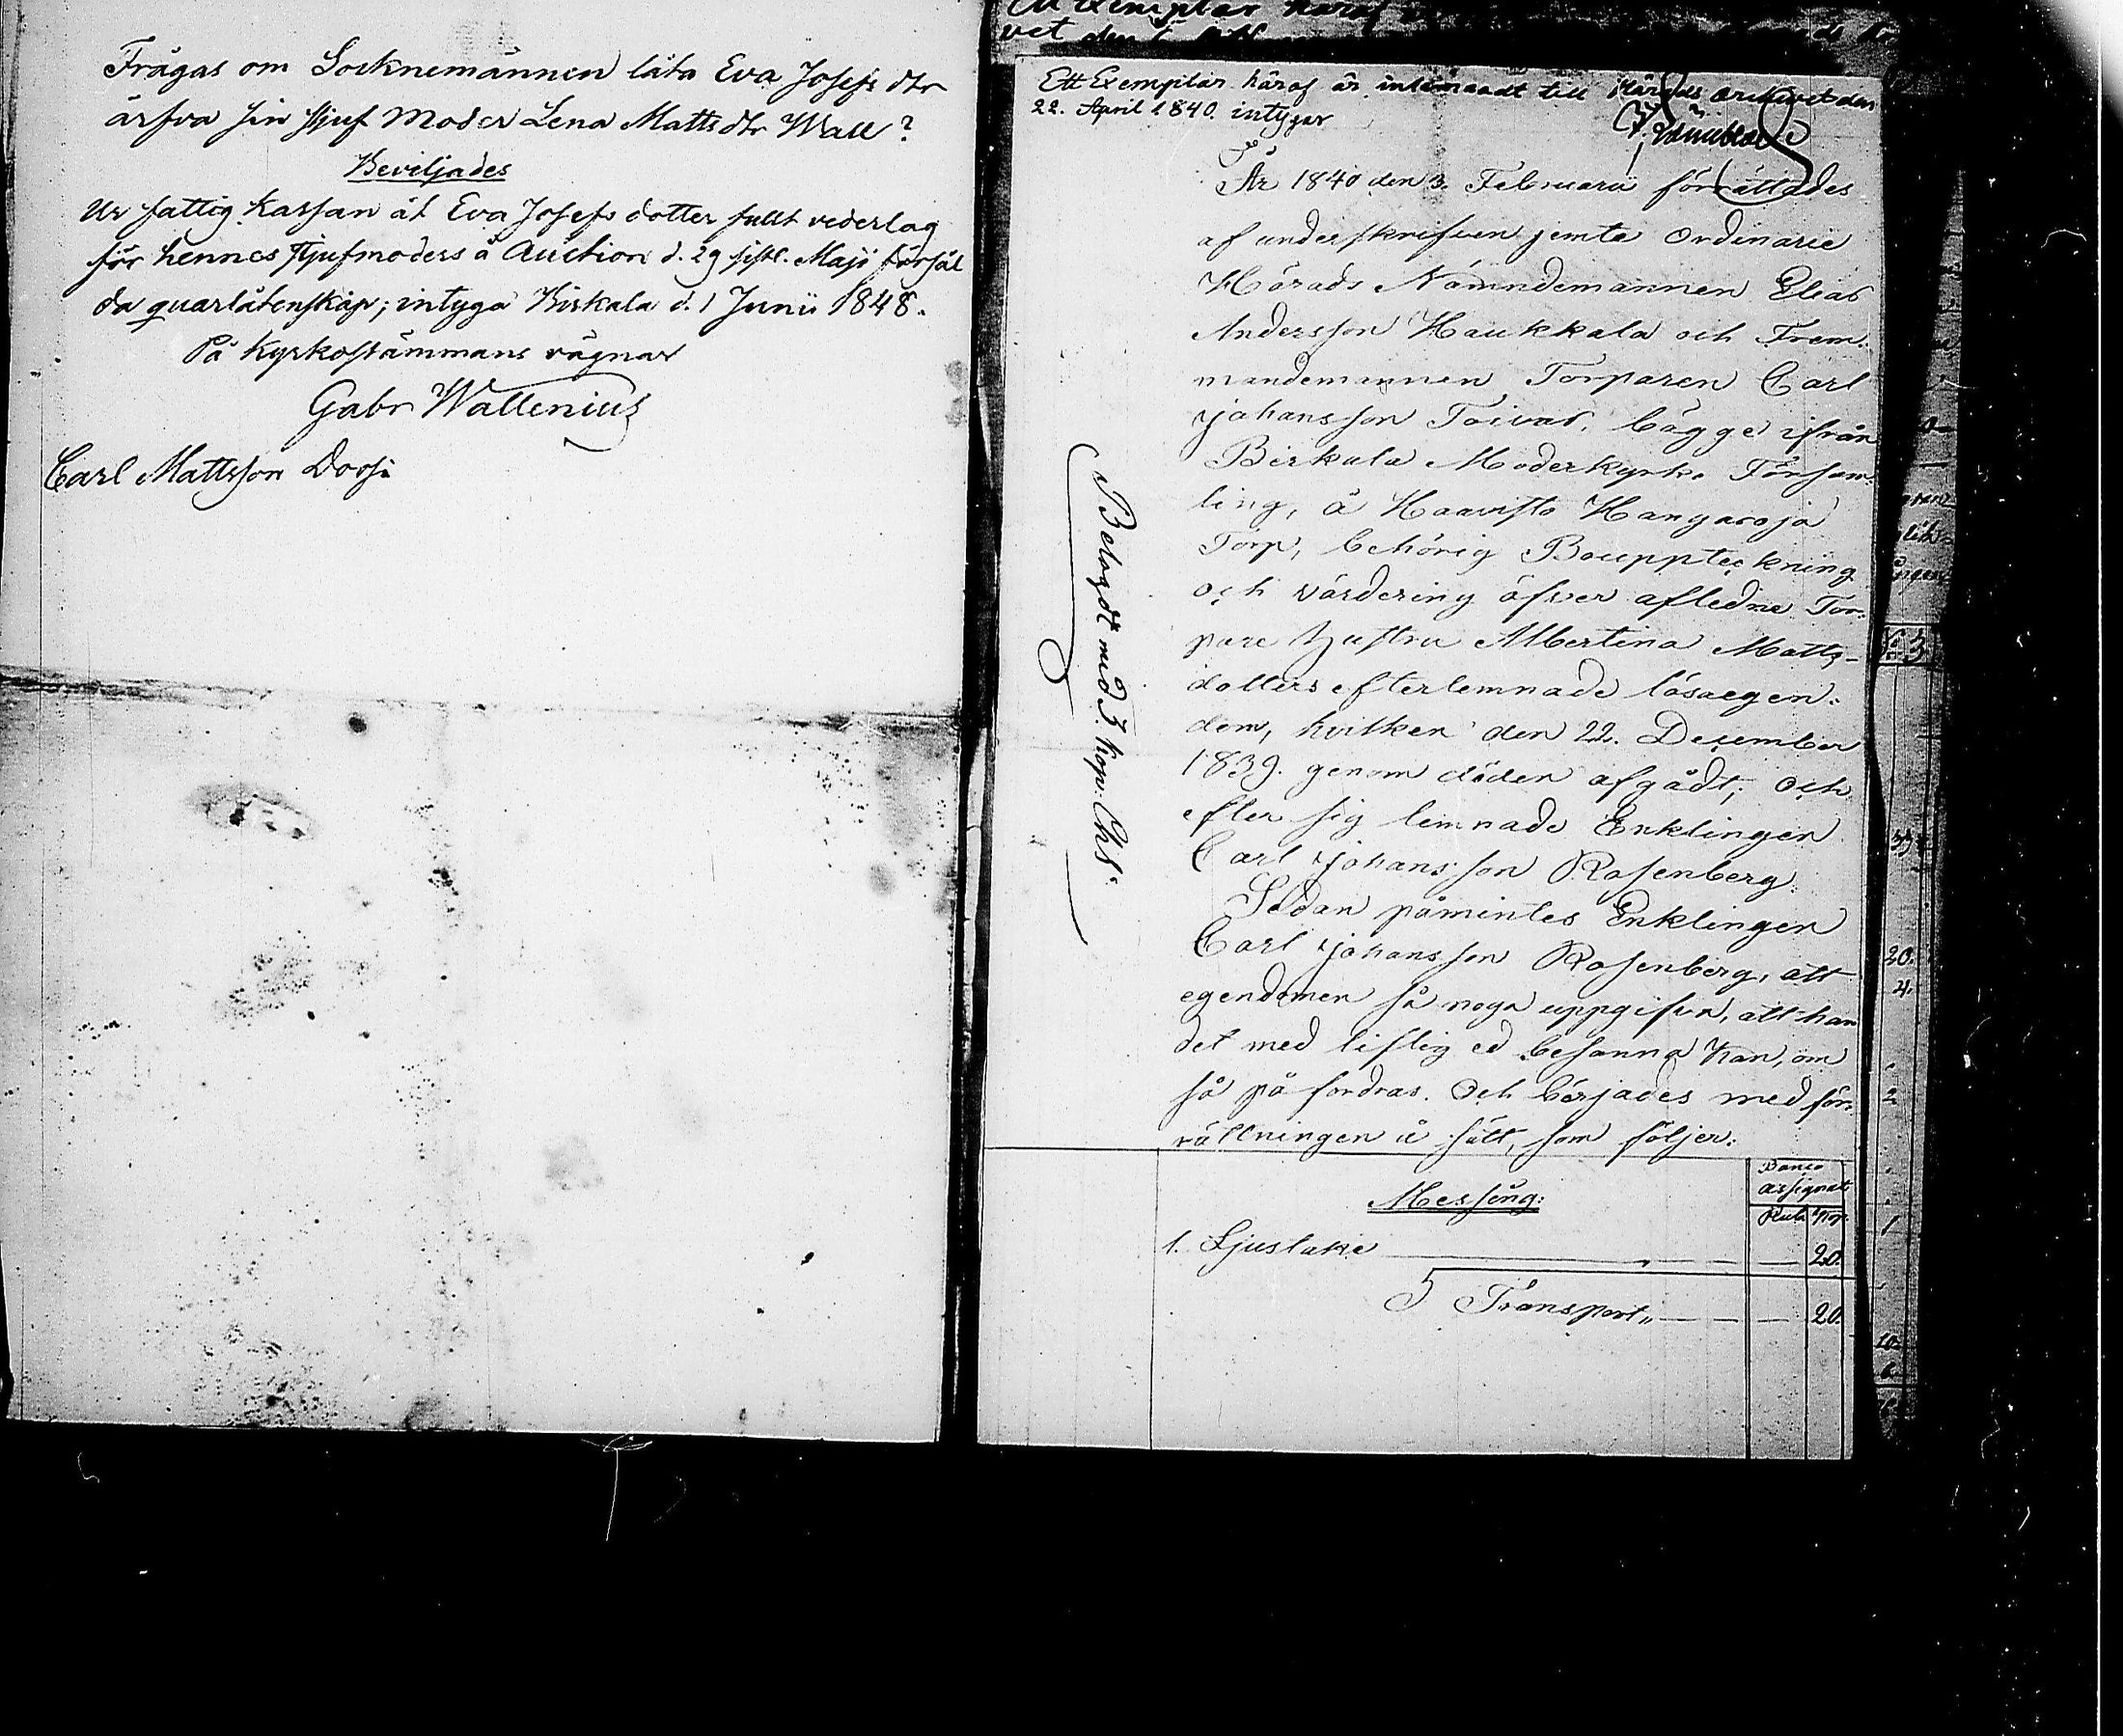 Frågas om Socknemännen låta Eva Josefs dtr
ärfva sin stjuf Moder Lena Matts dtr Wall?
Beviljades
Ur fattig Kassan åt Eva Josefs dotter fullt vederlag
för hennes stjufmoders å Auction d. 29 sistl. Maji försål
da quarlåtenskap; intyga Birkala d. 1 Junii 1848.
På Kyrkostämmans vägnar
Gabr Wallenius
Carl Mattsson Dorsi
Ett Exemplar häraf
vet den
Ett Exemplar häraf är inlämnadt till Härads archivet den
22. April 1840. intygar
År 1840 den 3. Februarii förrättades
af underskrifven jemte Ordinarie
Härads Nämndemannen Elias
Andersson Haukkala och Frem-
mandemannen Torparen Carl
Johansson Toivas, bägge ifrån
Birkala Moderkyrko Försam-
ling, å Haavisto Hangasoja
Torp, behörig Bouppteckning
och värdering öfver aflednе Tor-
pare hustru Albertina Matts-
dotters efterlemnade lösaegen-
dom, hvilken den 22. December
1839. genom döden afgådt; och
efter sig lemnade Enklingen
Carl Johansson Rosenberg.
Sedan påmintes Enklingen
Carl Johansson Rosenberg, att
egendomen så noga uppgifva, att han
det med liflig ed besanna kan, om
så på fordras. Och börjades med för-
rättningen å sätt, som följer:
Belagdt med 3. kop. Chs.
Banco
assignat
Messing:
Rub. Kop.
1. Ljustake 20.
Transport 20.